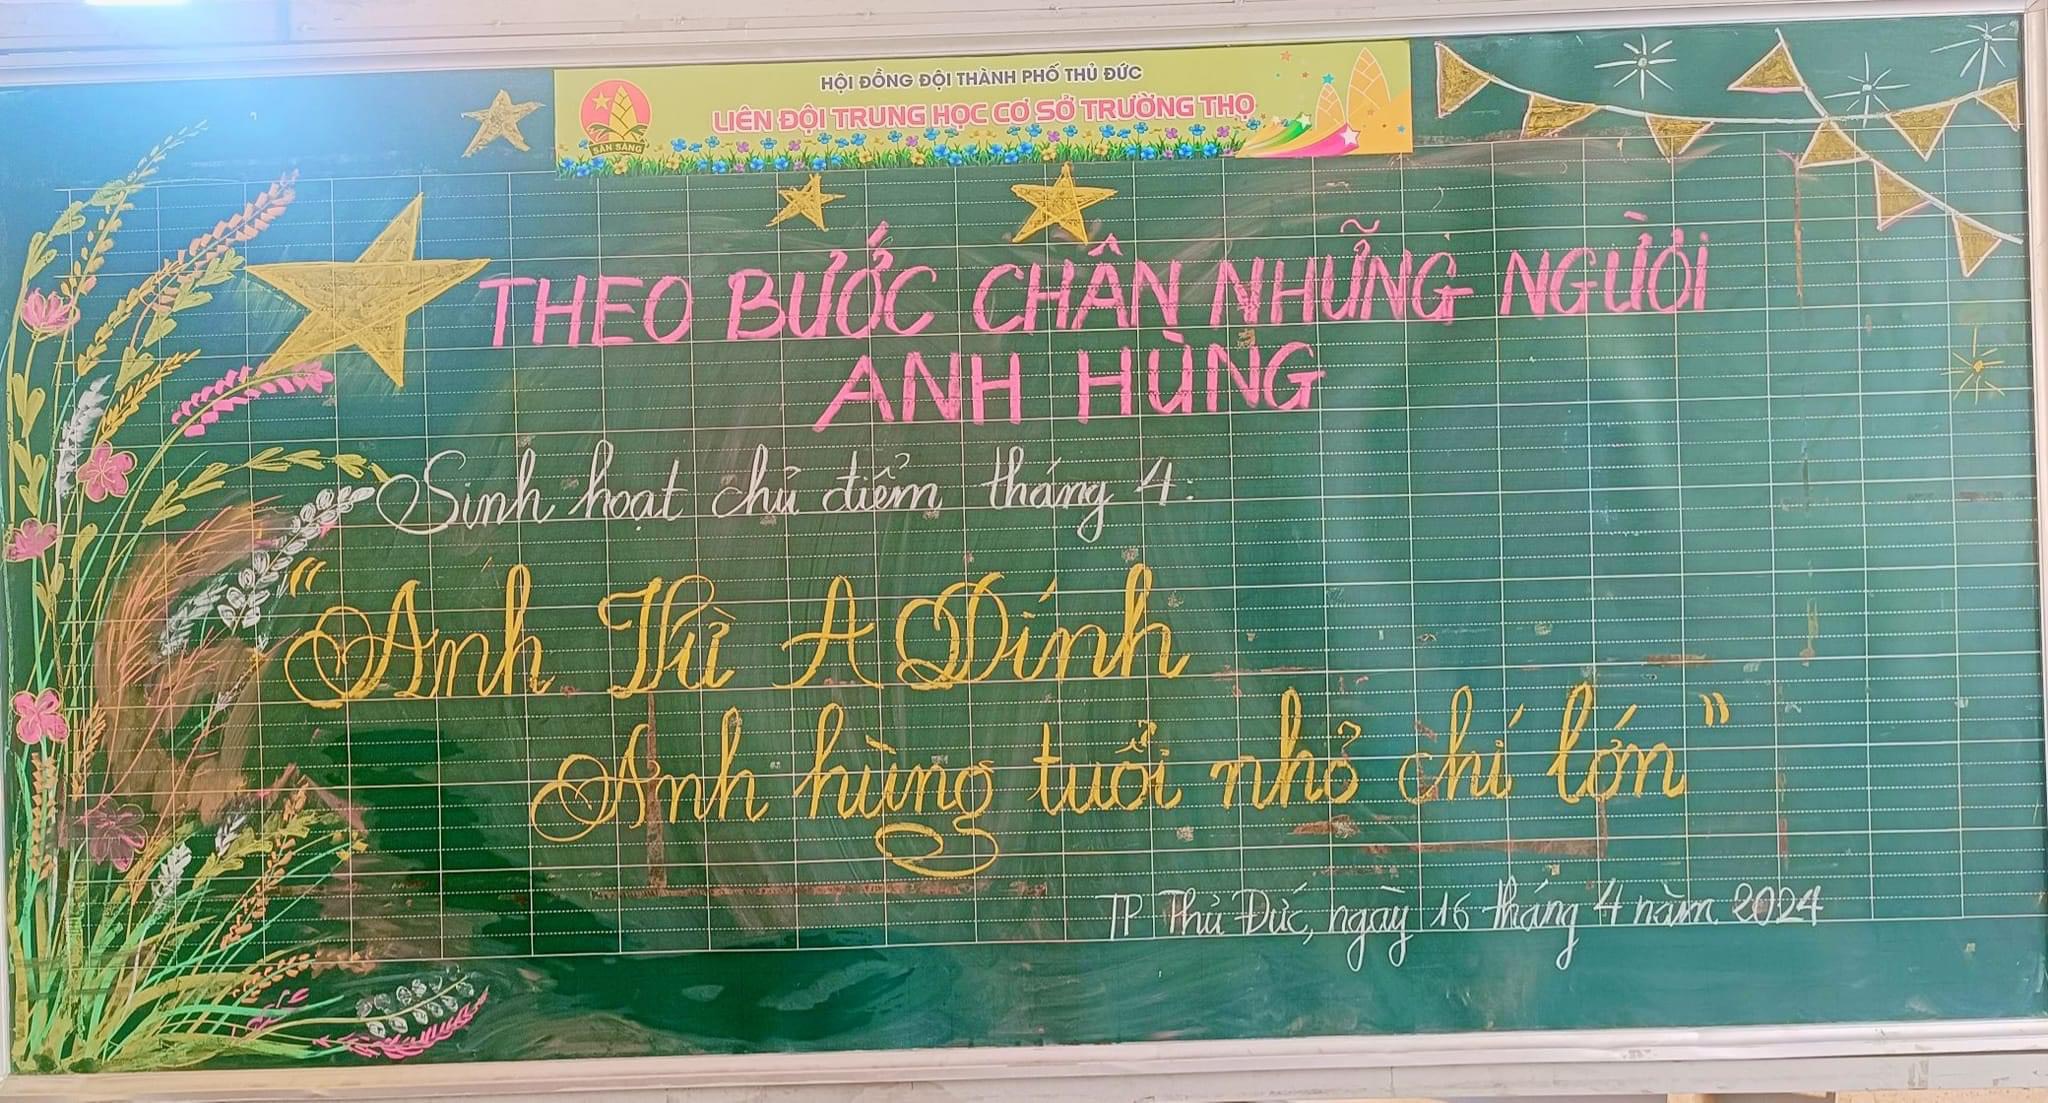 HỘI ĐỒNG ĐỘI THÀNH PHỐ THỦ ĐỨC
LIÊN ĐỘI TRUNG HỌC CƠ SỞ TRƯỜNG THỌ
SẴN SÀNG
THEO BƯỚC CHÂN NHỮNG NGƯỜI
ANH HÙNG
Sinh hoạt chủ điểm tháng 4:
"Anh Vừ A Dính
Anh hùng tuổi nhỏ chí lớn"
TP Thủ Đức, ngày 16 tháng 4 năm 2024